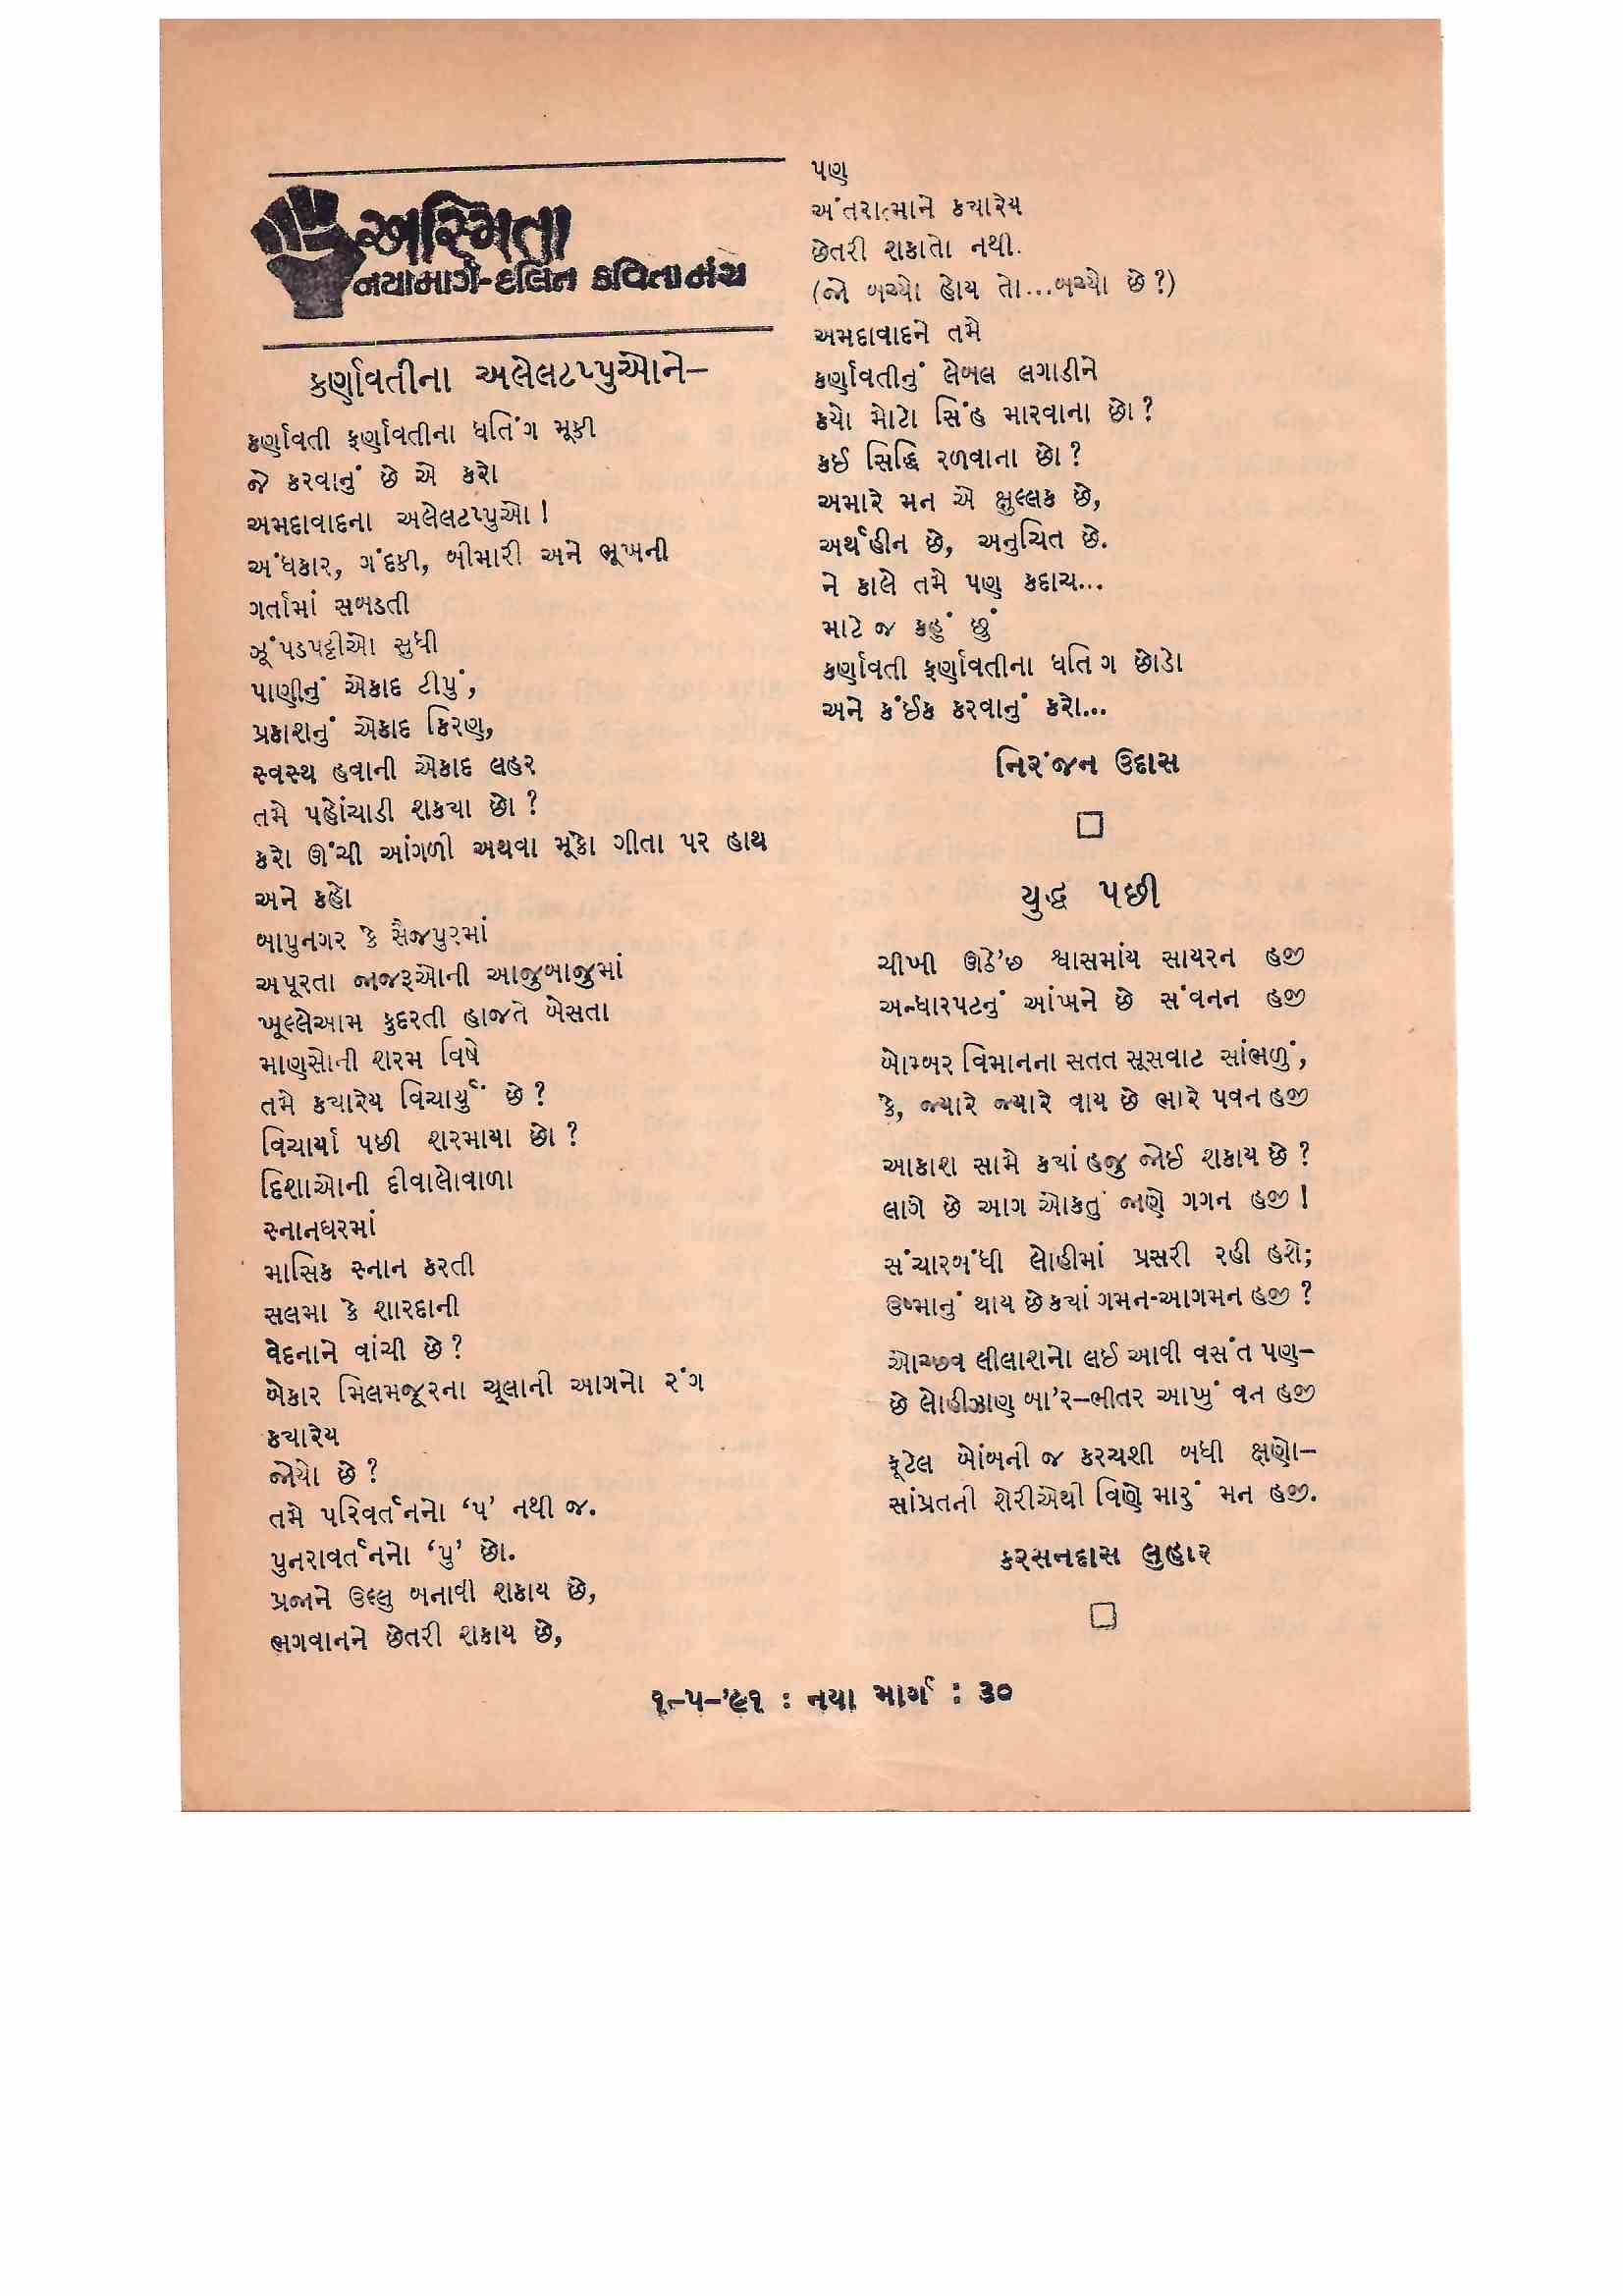 અસ્મિતા
નયામાર્ગ-દલિત કવિતામંચ
કર્ણાવતીના અલેલટપ્પુઓને–
કર્ણાવતી ફર્ણાવતીના ધતિંગ મૂકી
જે કરવાનું છે એ કરો
અમદાવાદના અલેલટપ્પુઓ !
અંધકાર, ગંદકી, બીમારી અને ભૂખની
ગર્તામાં સબડતી
ઝૂંપડપટ્ટીઓ સુધી
પાણીનું એકાદ ટીપું,
પ્રકાશનું એકાદ કિરણ,
સ્વસ્થ હવાની એકાદ લહર
તમે પહોંચાડી શક્યા છો ?
કરો ઊંચી આંગળી અથવા મૂકો ગીતા પર હાથ
અને કહો
બાપુનગર કે સૈજપુરમાં
અપૂરતા જાજરૂઓની આજુબાજુમાં
ખૂલ્લેઆમ કુદરતી હાજતે બેસતા
માણસોની શરમ વિષે
તમે ક્યારેય વિચાર્યું છે ?
વિચાર્યા પછી શરમાયા છો ?
દિશાઓની દીવાલોવાળા
સ્નાનઘરમાં
માસિક સ્નાન કરતી
સલમા કે શારદાની
વેદનાને વાંચી છે ?
બેકાર મિલમજૂરના ચૂલાની આગનો રંગ
ક્યારેય
જોયો છે ?
તમે પરિવર્તનનો ‘પ’ નથી જ.
પુનરાવર્તનનો ‘પુ’ છો.
પ્રજાને ઉલ્લુ બનાવી શકાય છે,
ભગવાનને છેતરી શકાય છે,
પણ
અંતરાત્માને ક્યારેય
છેતરી શકાતો નથી.
(જો બચ્યો હોય તો...બચ્યો છે ?)
અમદાવાદને તમે
કર્ણાવતીનું લેબલ લગાડીને
કયો મોટો સિંહ મારવાના છો ?
કઈ સિદ્ધિ રળવાના છો ?
અમારે મન એ ક્ષુલ્લક છે,
અર્થહીન છે, અનુચિત છે.
ને કાલે તમે પણ કદાચ...
માટે જ કહું છું
કર્ણાવતી ફર્ણાવતીના ધતિંગ છોડો
અને કંઈક કરવાનું કરો...
નિરંજન ઉદાસ
યુદ્ધ પછી
ચીખી ઊઠે’છ શ્વાસમાંય સાયરન હજી
અન્ધારપટનું આંખને છે સંવનન હજી
બોમ્બર વિમાનના સતત સૂસવાટ સાંભળું,
કે, જ્યારે જ્યારે વાય છે ભારે પવન હજી
આકાશ સામે ક્યાં હજુ જોઈ શકાય છે ?
લાગે છે આગ ઓકતું જાણે ગગન હજી !
સંચારબંધી લોહીમાં પ્રસરી રહી હશે;
ઉષ્માનું થાય છે ક્યાં ગમન-આગમન હજી ?
ઓચ્છવ લીલાશનો લઈ આવી વસંત પણ–
છે લોહીઝાણ બા’ર–ભીતર આખું વન હજી
ફૂટેલ બોંબની જ કરચશી બધી ક્ષણો–
સાંપ્રતની શેરીએથી વિણે મારું મન હજી.
કરસનદાસ લુહાર
૧–૫–’૯૧ : નયા માર્ગ : ૩૦